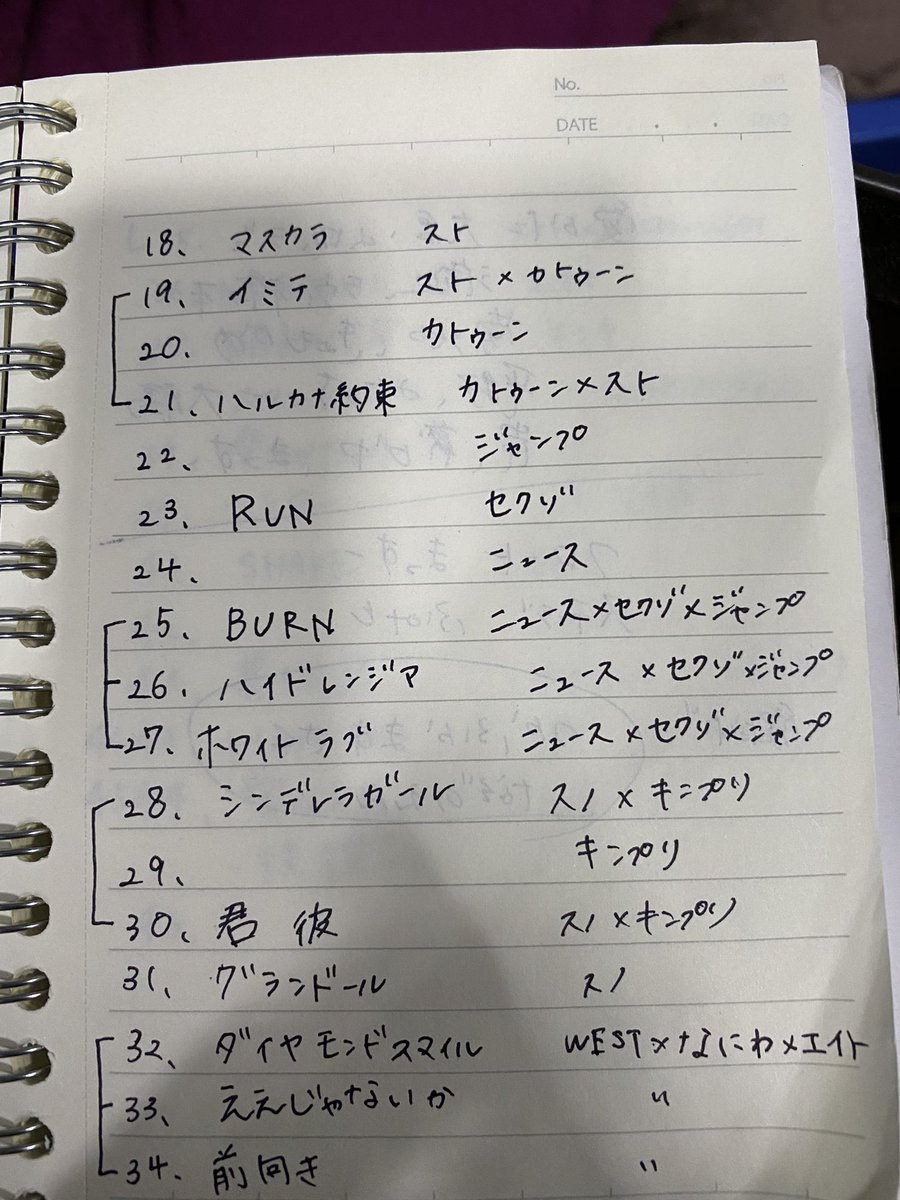 No.
DATE . .
18、 マスカラ スト
19、 イミテ スト×カトゥーン
20. カトゥーン
21、ハルカナ約束 カトゥーン×スト
22、 ジャンプ
23、 RUN セクゾ
24. ニュース
25、 BURN ニュース×セクゾ×ジャンプ
26、 ハイドレンジア ニュース×セクゾ×ジャンプ
27、ホワイトラブ ニュース×セクゾ×ジャンプ
28、 シンデレラガール スノ×キンプリ
29、 キンプリ
30、君 彼 スノ×キンプリ
31、 グランドール スノ
32、 ダイヤモンドスマイル WEST×なにわ×エイト
33、 ええじゃないか 〃
34. 前向き 〃